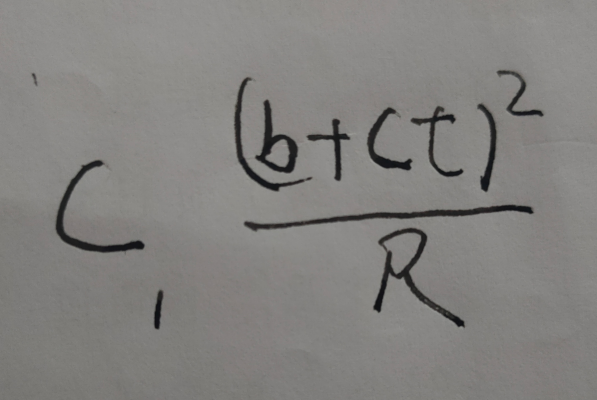 C₁ (b+ct)²
R